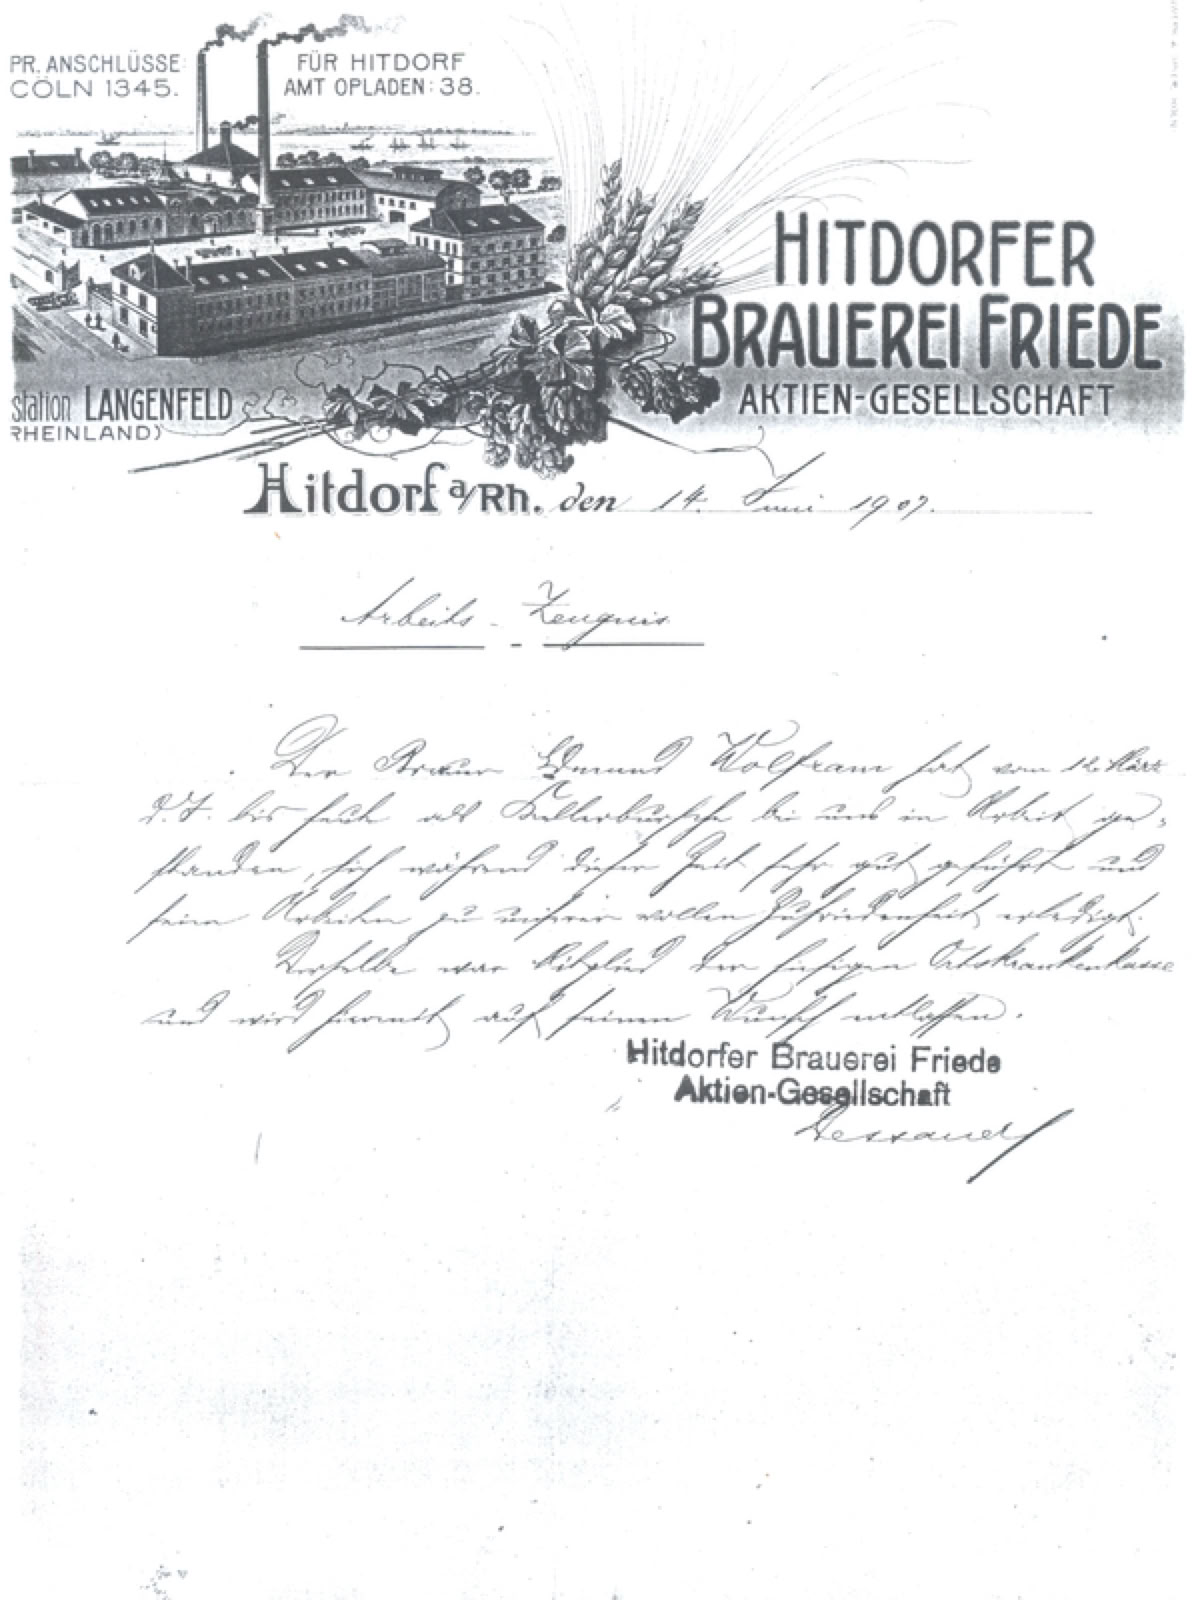 PR. ANSCHLÜSSE:
CÖLN 1345.
FÜR HITDORF
AMT OPLADEN: 38.
HITDORFER
BRAUEREI FRIEDE
AKTIEN-GESELLSCHAFT
station LANGENFELD
RHEINLAND)
Hitdorf a/Rh. den 14. Juni 1907.
Arbeits-Zeugnis
Der Brauer Edmund Wolfram hat vom 12. März
d. J. bis heute als Kellerbursche bei uns in Arbeit ge-
standen, sich während dieser Zeit sehr gut geführt und
seine Arbeiten zu unserer vollen Zufriedenheit erledigt.
Derselbe war Mitglied der hiesigen Ortskrankenkasse
und wird hiermit auf seinen Wunsch entlassen.
Hitdorfer Brauerei Friede
Aktien-Gesellschaft